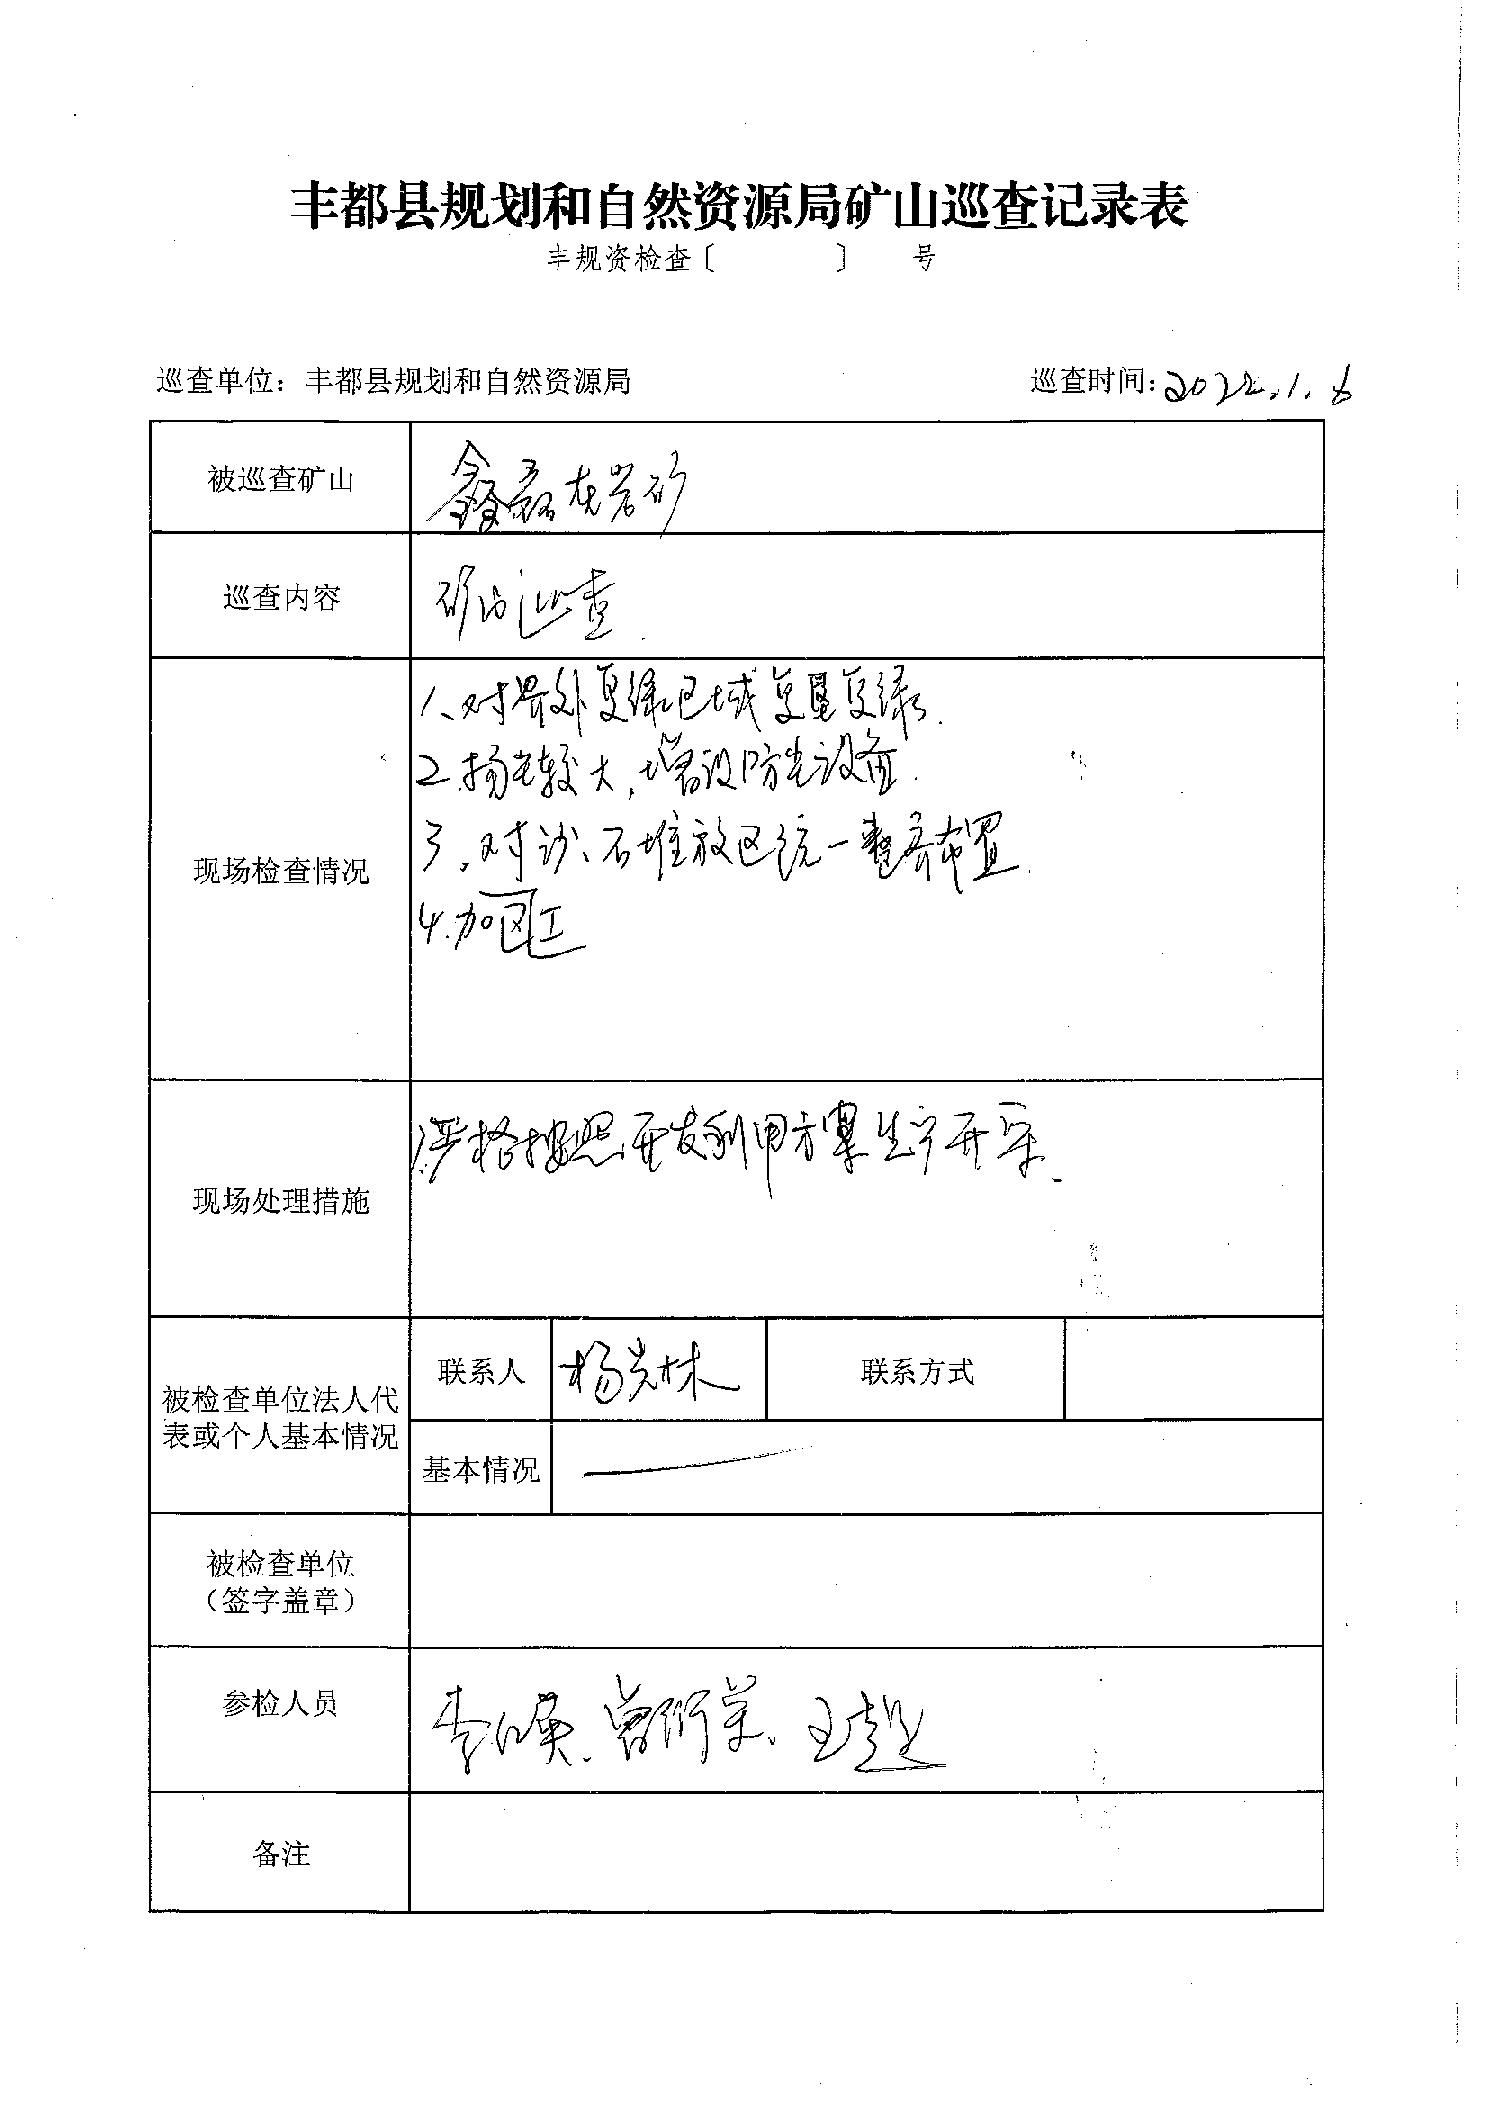 丰都县规划和自然资源局矿山巡查记录表
丰规资检查〔 〕 号
巡查单位：丰都县规划和自然资源局 巡查时间：2022.1.6
被巡查矿山 鑫磊灰岩矿
巡查内容 矿山巡查.
现场检查情况
1、对界外复绿区域复垦复绿.
2.扬尘较大,增设防尘设备.
3.对沙、石堆放区统一整齐布置.
4.加
现场处理措施
严格按照开发利用方案生产开采.
被检查单位法人代
表或个人基本情况
联系人 杨 林 联系方式
基本情况
被检查单位
（签字盖章）
参检人员 李 、曾 荣、王超
备注